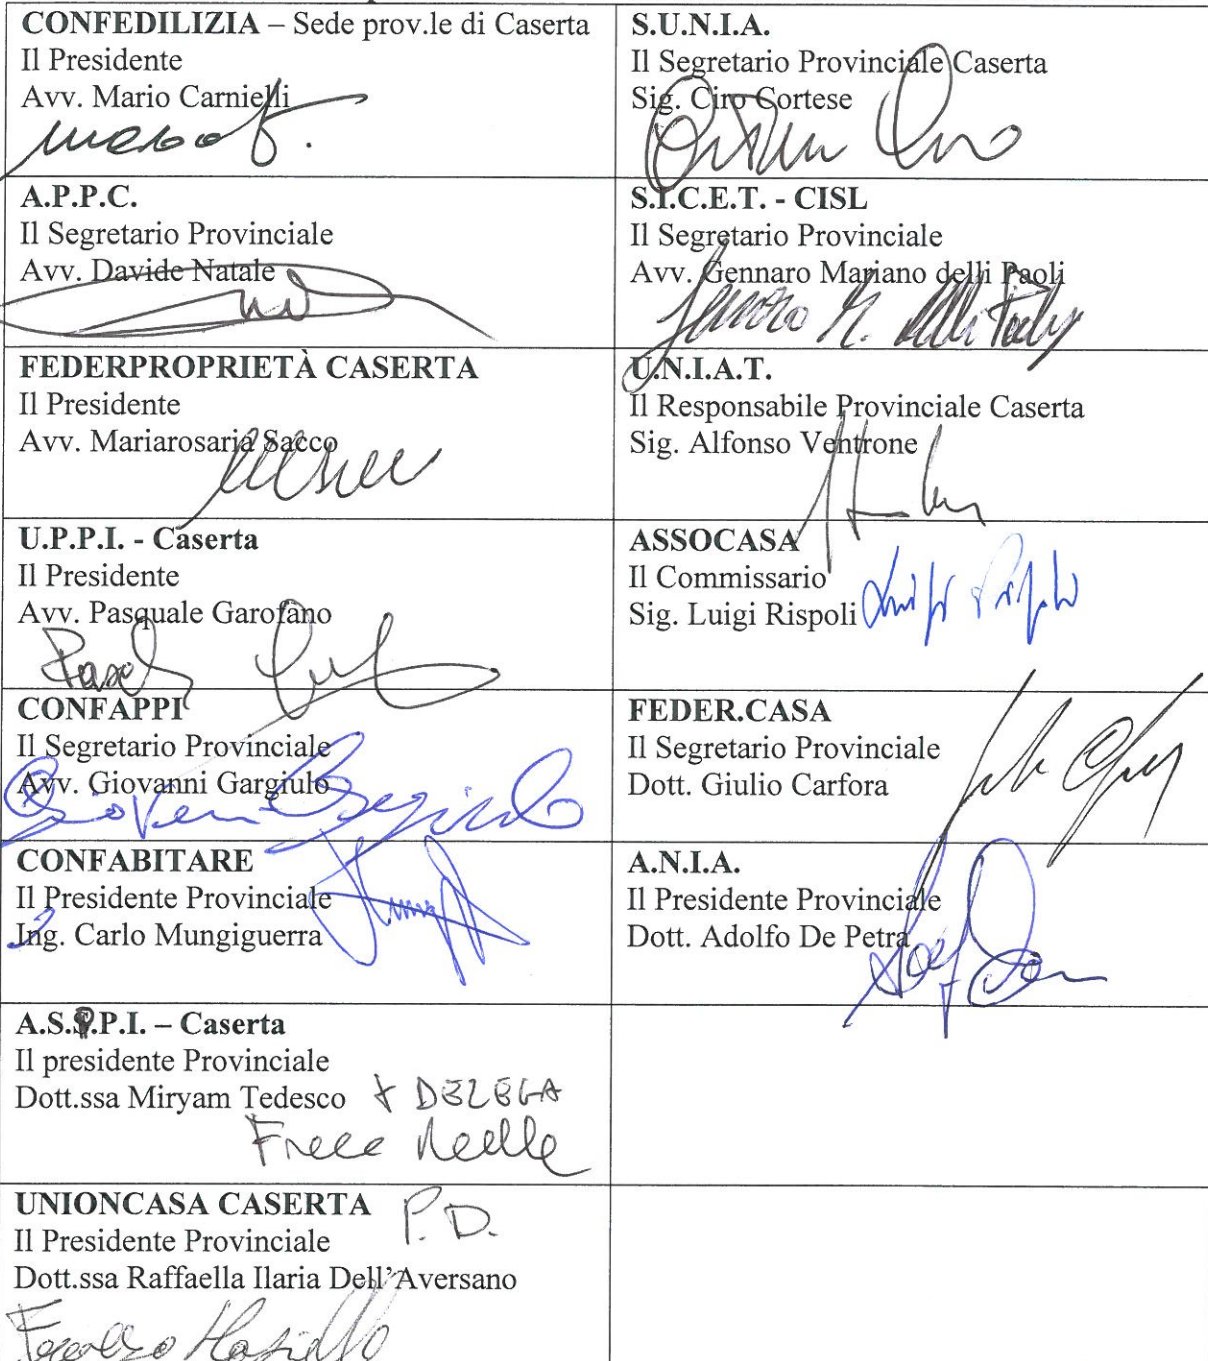 CONFEDILIZIA – Sede prov.le di Caserta
Il Presidente
Avv. Mario Carnielli
S.U.N.I.A.
Il Segretario Provinciale Caserta
Sig. Ciro Cortese
A.P.P.C.
Il Segretario Provinciale
Avv. Davide Natale
S.I.C.E.T. - CISL
Il Segretario Provinciale
Avv. Gennaro Mariano delli Paoli
FEDERPROPRIETÀ CASERTA
Il Presidente
Avv. Mariarosaria Sacco
U.N.I.A.T.
Il Responsabile Provinciale Caserta
Sig. Alfonso Ventrone
U.P.P.I. - Caserta
Il Presidente
Avv. Pasquale Garofano
ASSOCASA
Il Commissario
Sig. Luigi Rispoli
CONFAPPI
Il Segretario Provinciale
Avv. Giovanni Gargiulo
FEDER.CASA
Il Segretario Provinciale
Dott. Giulio Carfora
CONFABITARE
Il Presidente Provinciale
Ing. Carlo Mungiguerra
A.N.I.A.
Il Presidente Provinciale
Dott. Adolfo De Petra
A.S.P.P.I. – Caserta
Il presidente Provinciale
Dott.ssa Miryam Tedesco
DELEGA
UNIONCASA CASERTA P.D.
Il Presidente Provinciale
Dott.ssa Raffaella Ilaria Dell'Aversano